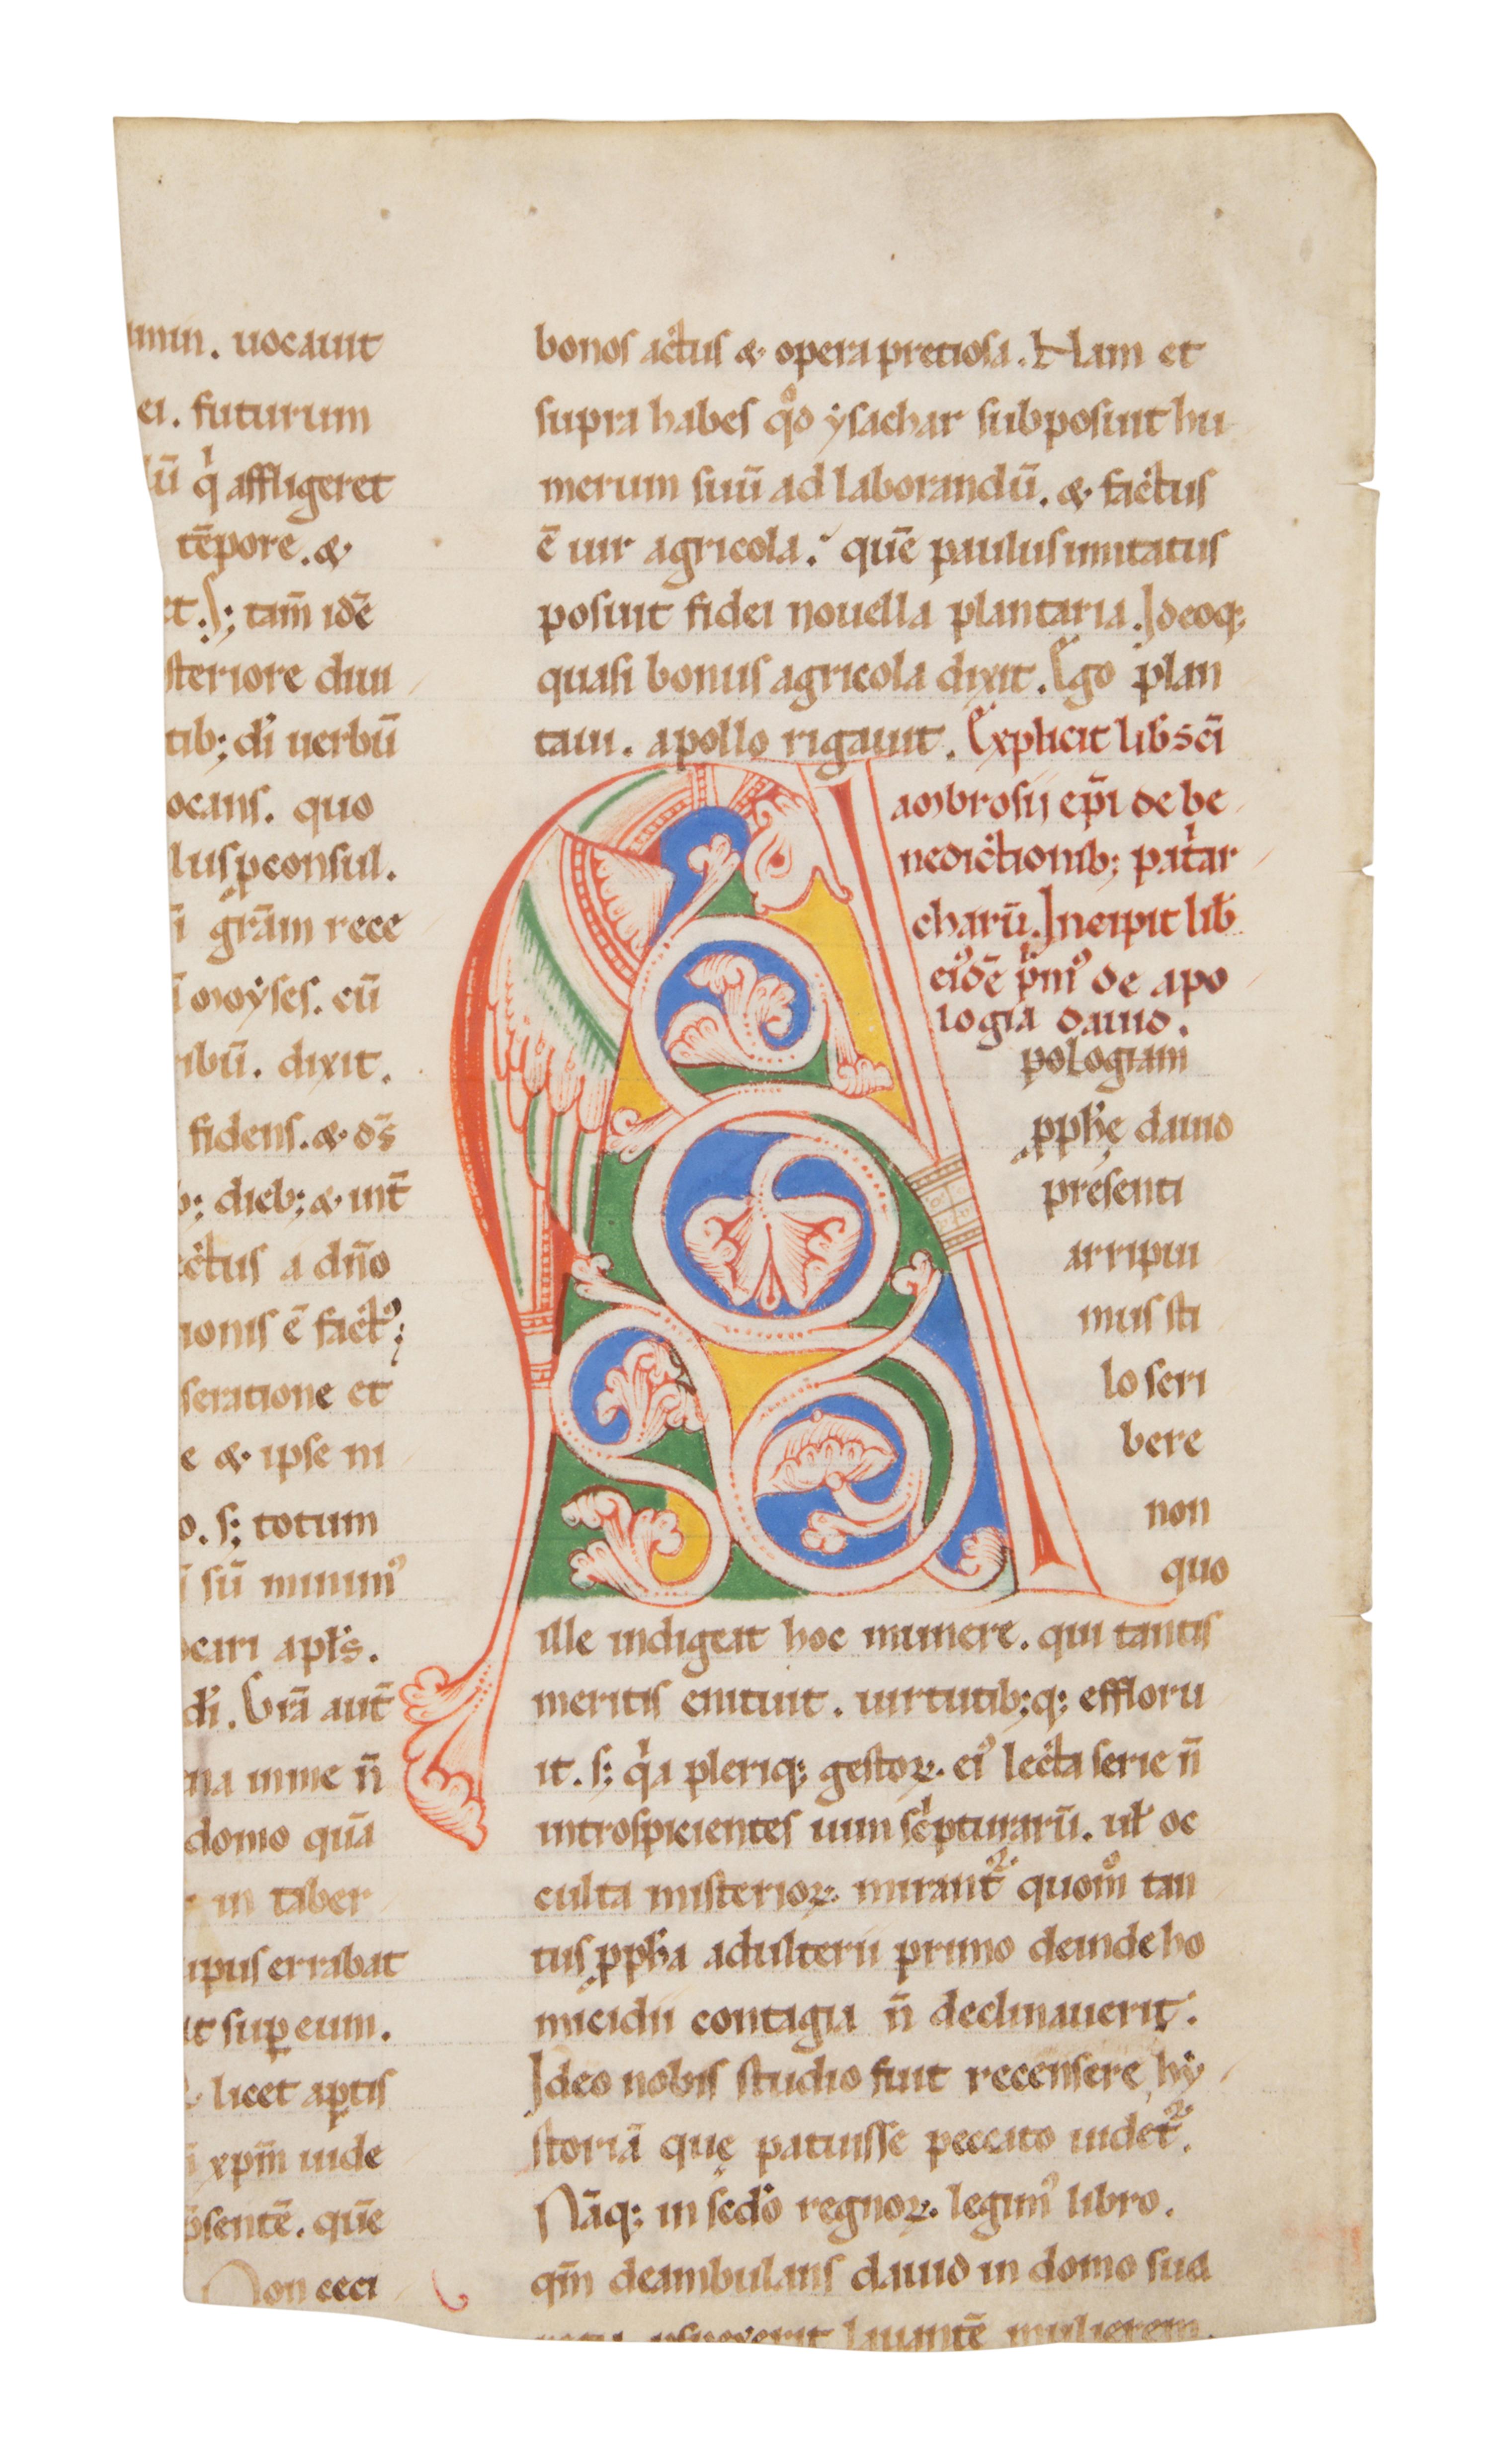 uocauit
ei. futurum
q̍ affligeret
tēpore. &
et. S; tam̄ idē
steriore diui
tib; dī uerbū
ocans. quo
lus ꝓconsul.
gr̄am rece
moẏses. cū
ribū. dixit.
fidens. & d̄s
b; dieb; & int̄
ectus a dn̄o
ionis ē fact᷒;
seratione et
e & ipse ni
o. s; totum
sū minim᷒
ocari apl̄s.
dī. Vr̄a aut̄
na inme n̄
domo quā
in taber
ipus errabat
it suꝑ eum.
licet aꝑtis
xpm̄ uide
p̄sentē. quē
Non ceci
bonos actus & opera pretiosa. Nam et
supra habes qͦd ẏsachar subposiut hu
merum suū ad laborandū. & factus
ē uir agricola. quē paulus imitatus
posiut fidei nouella plantaria. Ideoq;
quasi bonus agricola dixit. Ego plan
taui. apollo rigauit. Explicit lib̄ sc̄i
ambrosii ep̄i de be
nedictionib; pat̍ar
charū. Incipit lib̄
ei᷒dē p̍m᷒ de apo
logia dauid.
Apologiam
ꝓph̄ę dauid
presenti
arripui
mus sti
lo scri
bere
non
quo
ille indigeat hoc munere. qui tantis
meritis enituit. uirtutib;q; effloru
it. s; q̍a pleriq; gestoꝝ ei᷒ lecta serie n̄
introspicientes uim sc̍pturarū. ul̄ oc
culta misterioꝝ mirant᷑ quom̄ tan
tus ꝓph̄a adulterii primo deinde ho
micidii contagia n̄ declinauerit.
Ideo nobis studio fuit recensere hẏ
storiā quę patuisse peccato uidet᷑.
Nāq; in sc̄do regnoꝝ legim᷒ libro.
qm̄ deambulans dauid in domo sua
lauantē mulierem.